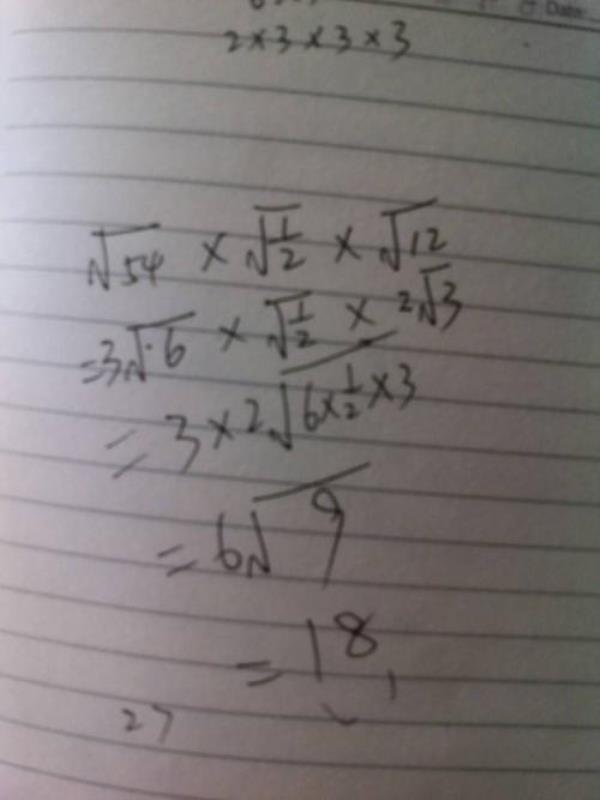 Date
2×3×3×3
√54 × √1/2 × √12
=3√6 × √1/2 × 2√3
= 3×2√6×1/2×3
= 6√9
= 18
27